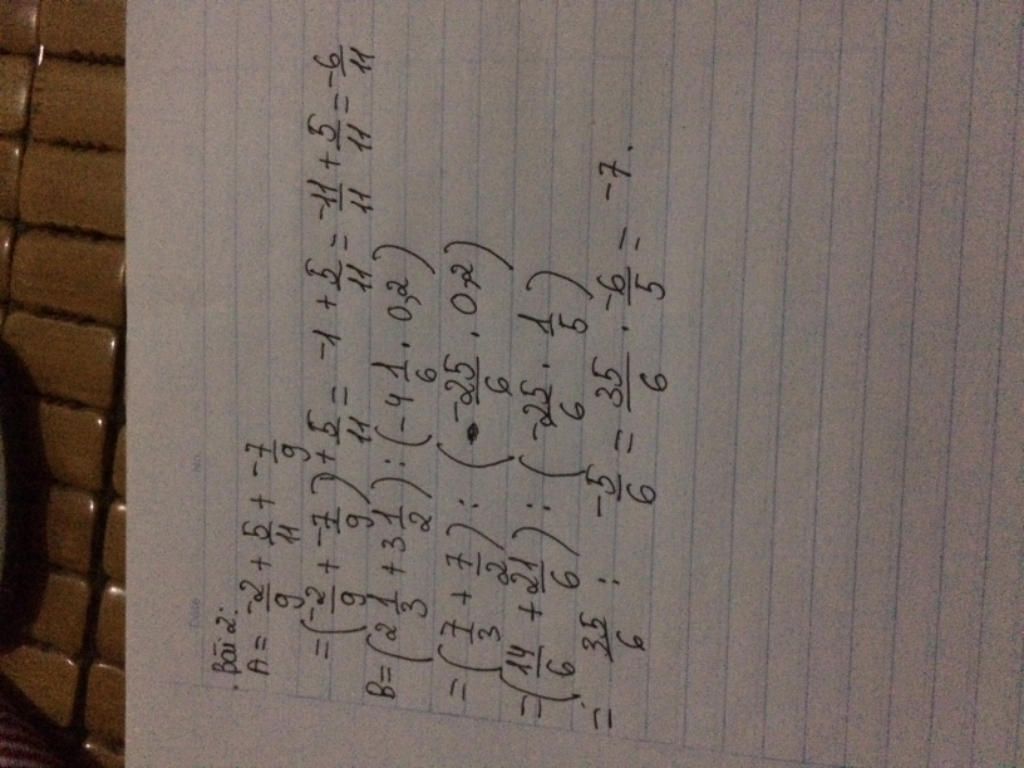 Bài 2:
A = -2/9 + 5/11 + -7/9
= (-2/9 + -7/9) + 5/11 = -1 + 5/11 = -11/11 + 5/11 = -6/11
B = (2 1/3 + 3 1/2) : (-4 1/6 . 0,2)
= (7/3 + 7/2) : (-25/6 . 0,2)
= (14/6 + 21/6) : (-25/6 . 1/5)
= 35/6 : -5/6 = 35/6 . -6/5 = -7.